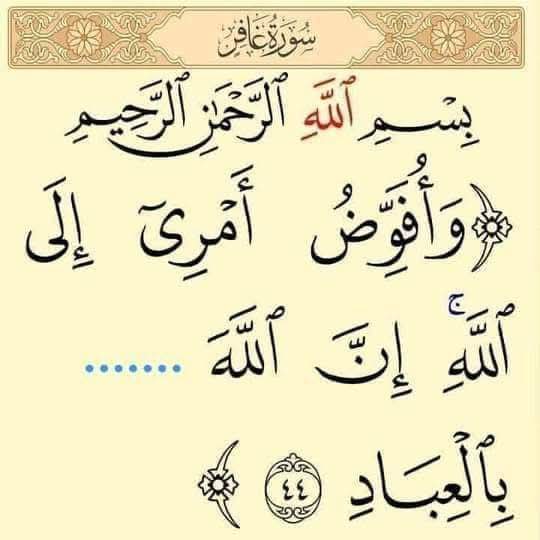 سُورَةُ غَافِرٍ
بِسْمِ ٱللَّهِ ٱلرَّحْمَٰنِ ٱلرَّحِيمِ
﴿وَأُفَوِّضُ أَمْرِىٓ إِلَى
ٱللَّهِۚ إِنَّ ٱللَّهَ .......
بِٱلْعِبَادِ ٤٤ ﴾